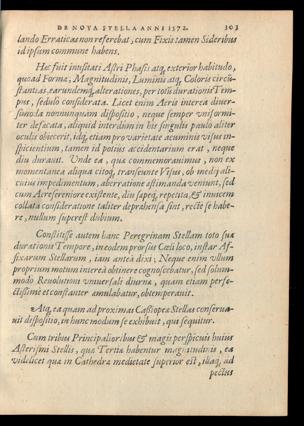 DE NOVA STELLA ANNI 1572. 303
lando Erraticas non referebat, cum Fixis tamen Sideribus
id ipsum commune habens.
Hæc fuit inusitati Astri Phasis atq, exterior habitudo,
quo ad Forma, Magnitudinis, Luminis atq, Coloris circũ-
stantias, earundemq, alterationes, per totũ durationis Tem-
pus, sedulo considerata. Licet enim Aeris interea diuer-
simoda nonnunquam dispositio, neque semper vniformi-
ter defæcata, aliquid interdum in his singulis paulo aliter
oculis obiecerit, idq, etiam pro varietate acuminis visus in-
spicientium, tamen id potius accidentarium erat, neque
diu durauit. Unde ea, qua commemorauimus, non ex
momentanea aliqua citoq, transeunte Visus, ob medij ali-
cuius impedimentum, aberratione æstimanda veniunt, sed
cum Aere sereniore existente, diu sæpeq, repetita, & inuicem
collata consideratione taliter deprehensa sint, recte se habe-
re, nullum superest dubium.
Constitisse autem hanc Peregrinam Stellam toto suæ
durationis Tempore, in eodem prorsus Cœli loco, instar Af-
fixarum Stellarum, iam anteà dixi; Neque enim vllum
proprium motum intereà obtinere cognoscebatur, sed solum-
modo Reuolutioni vniuersali diurnæ, quam etiam perfe-
ctissimè et constanter amulabatur, obtemperauit.
Atq, ea quam ad proximas Cassiopeæ Stellas conserua-
uit dispositio, in hunc modum se exhibuit, qui sequitur.
Cum tribus Principalioribus & magis perspicuis huius
Asterismi Stellis, quæ Tertiæ habentur magnitudinis, ea
videlicet quæ in Cathedræ medietate superior est, illaq, ad
pectus